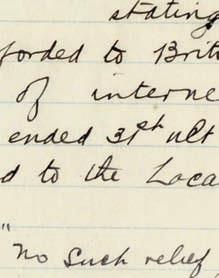 stating
forded to Brit
of interne
ended 31st ult
d to the Loca
"
No such relief